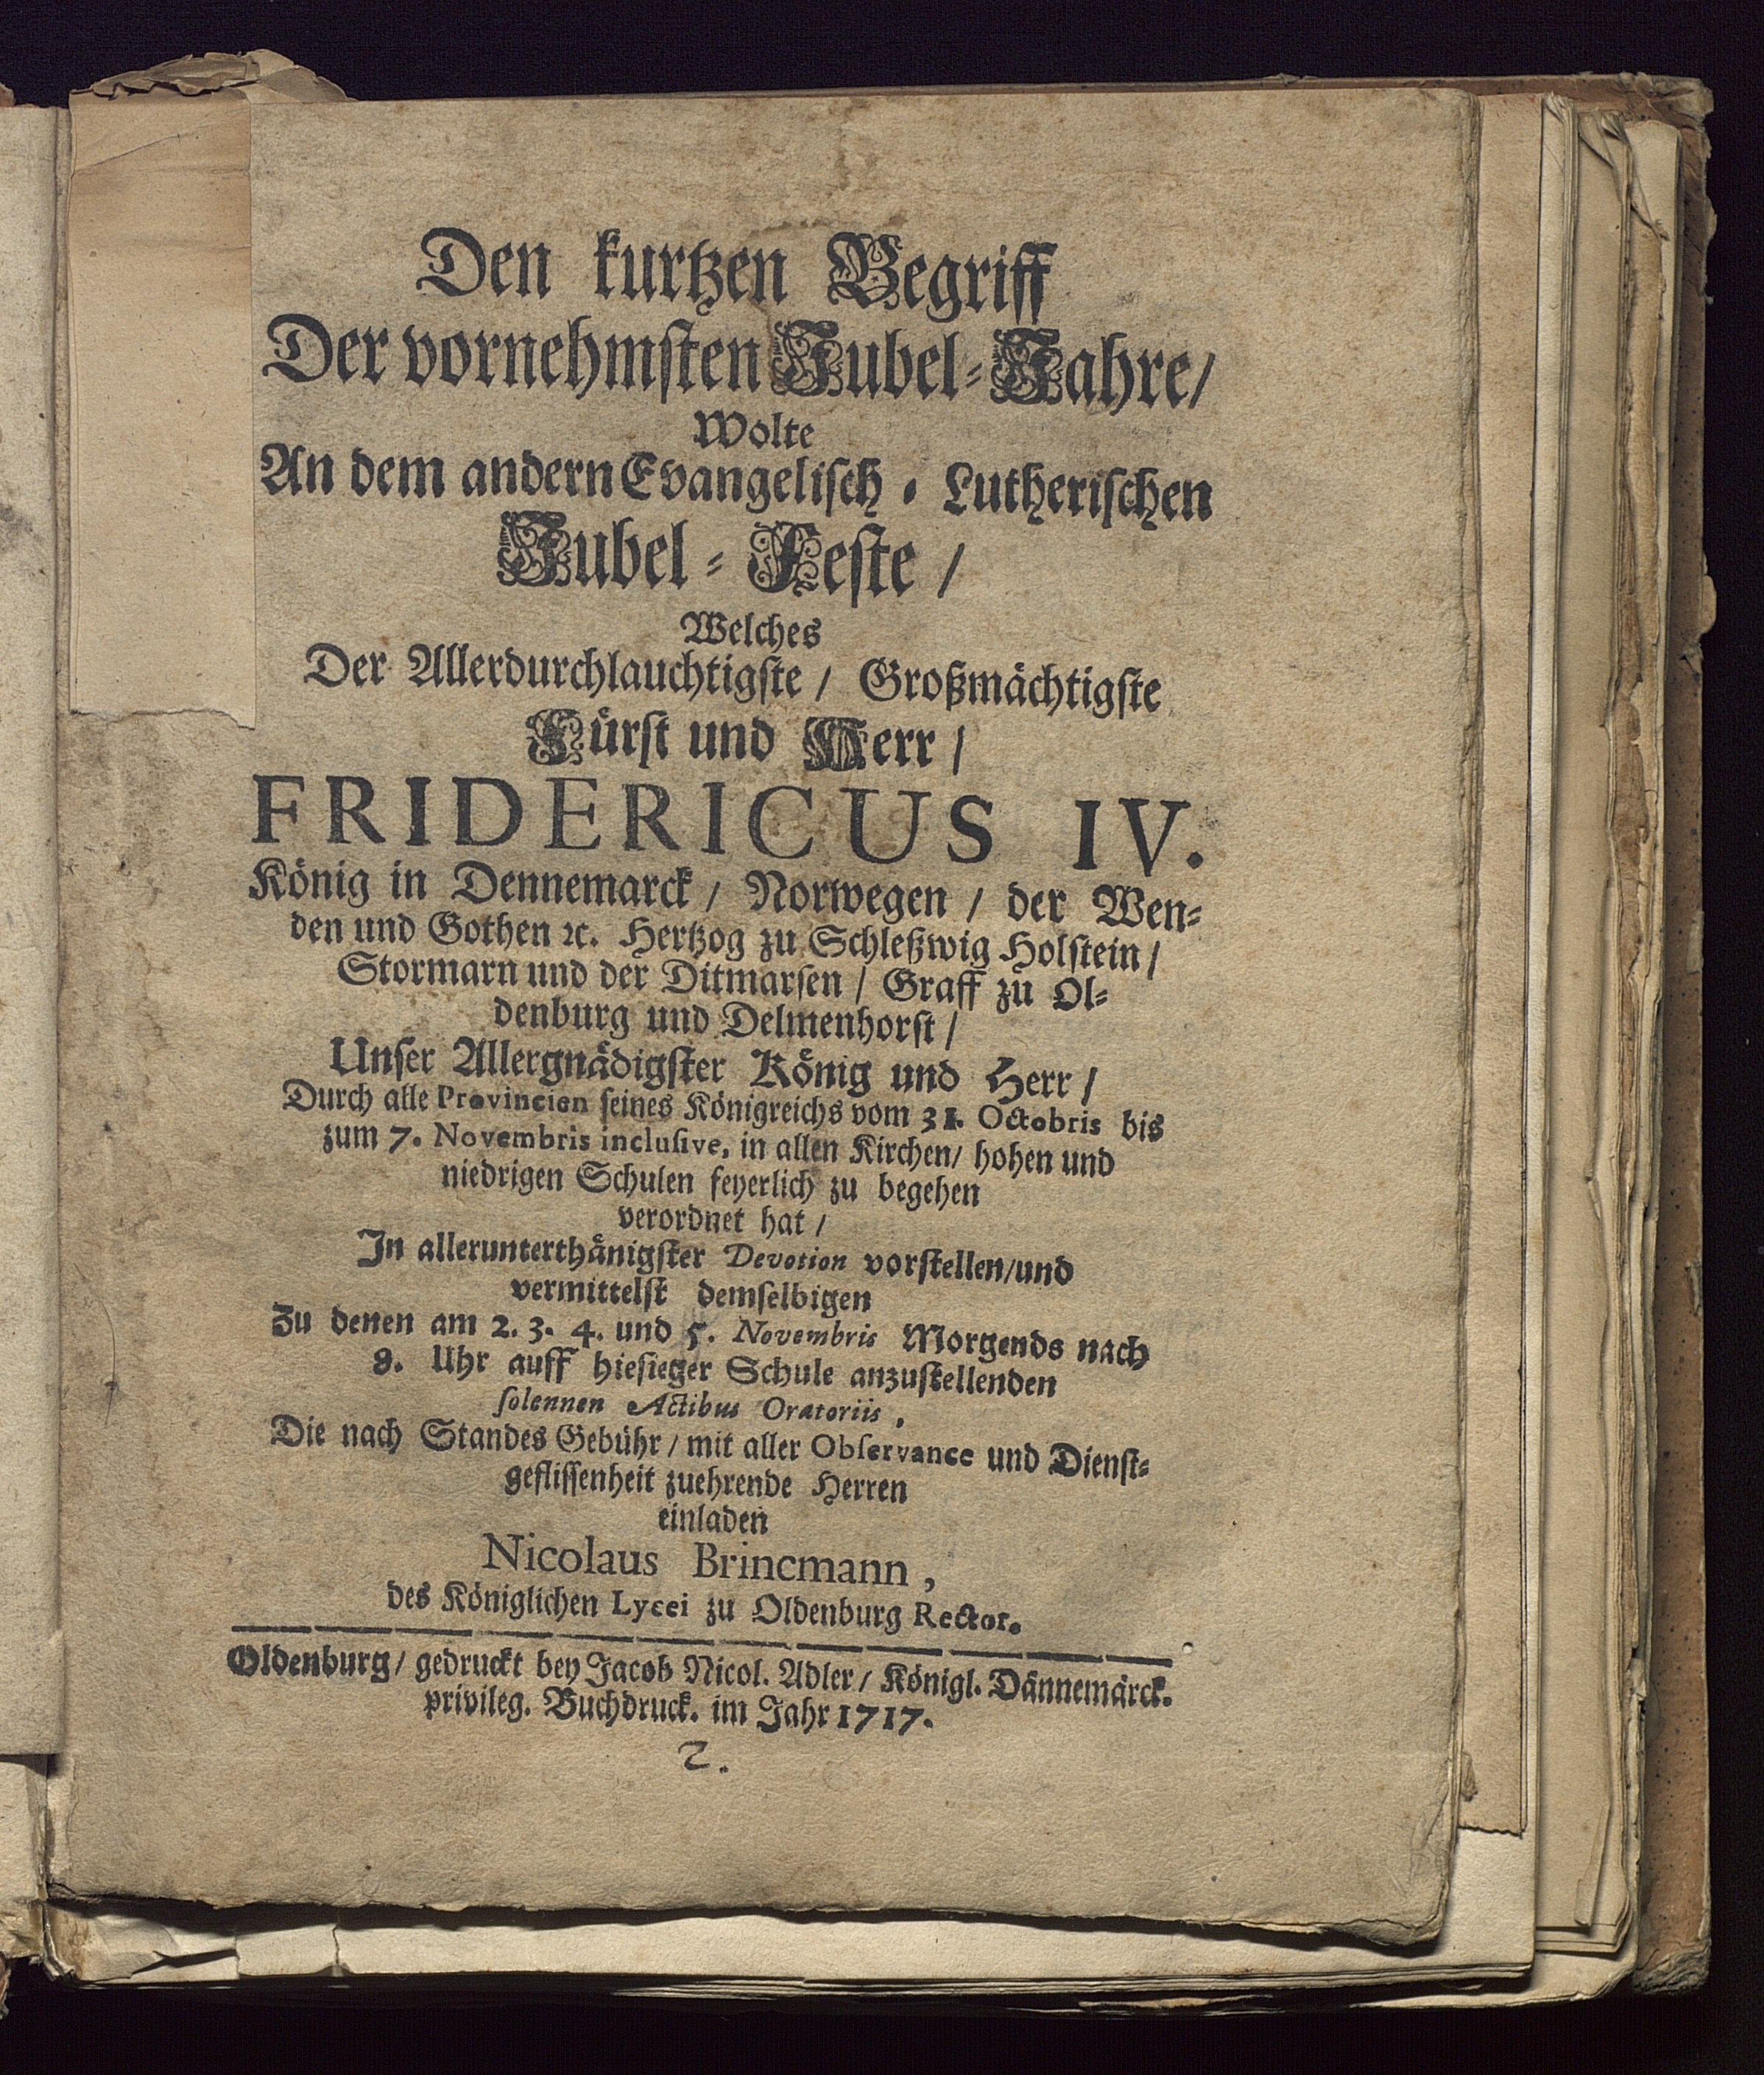 Den kurtzen Begriff
Der vornehmsten Jubel-Jahre/
Wolte
An dem andern Evangelisch-Lutherischen
Jubel-Feste/
Welches
Der Allerdurchlauchtigste/ Großmächtigste
Fürst und Herr/
FRIDERICUS IV.
König in Dennemarck/ Norwegen/ der Wen-
den und Gothen ꝛc. Hertzog zu Schleßwig Holstein/
Stormarn und der Ditmarsen/ Graff zu Ol-
denburg und Delmenhorst/
Unser Allergnädigster König und Herr/
Durch alle Provincien seines Königreichs vom 31. Octobris bis
zum 7. Novembris inclusive, in allen Kirchen/ hohen und
niedrigen Schulen feyerlich zu begehen
verordnet hat/
In allerunterthänigster Devotion vorstellen/und
vermittelst demselbigen
Zu denen am 2. 3. 4. und 5. Novembris Morgends nach
8. Uhr auff hiesieger Schule anzustellenden
solennen Actibus Oratoriis,
Die nach Standes Gebühr/ mit aller Observance und Dienst-
geflissenheit zuehrende Herren
einladen
Nicolaus Brincmann,
des Königlichen Lycei zu Oldenburg Rector.
Oldenburg/ gedruckt bey Jacob Nicol. Adler/ Königl. Dännemärck.
privileg. Buchdruck. im Jahr 1717.
2.